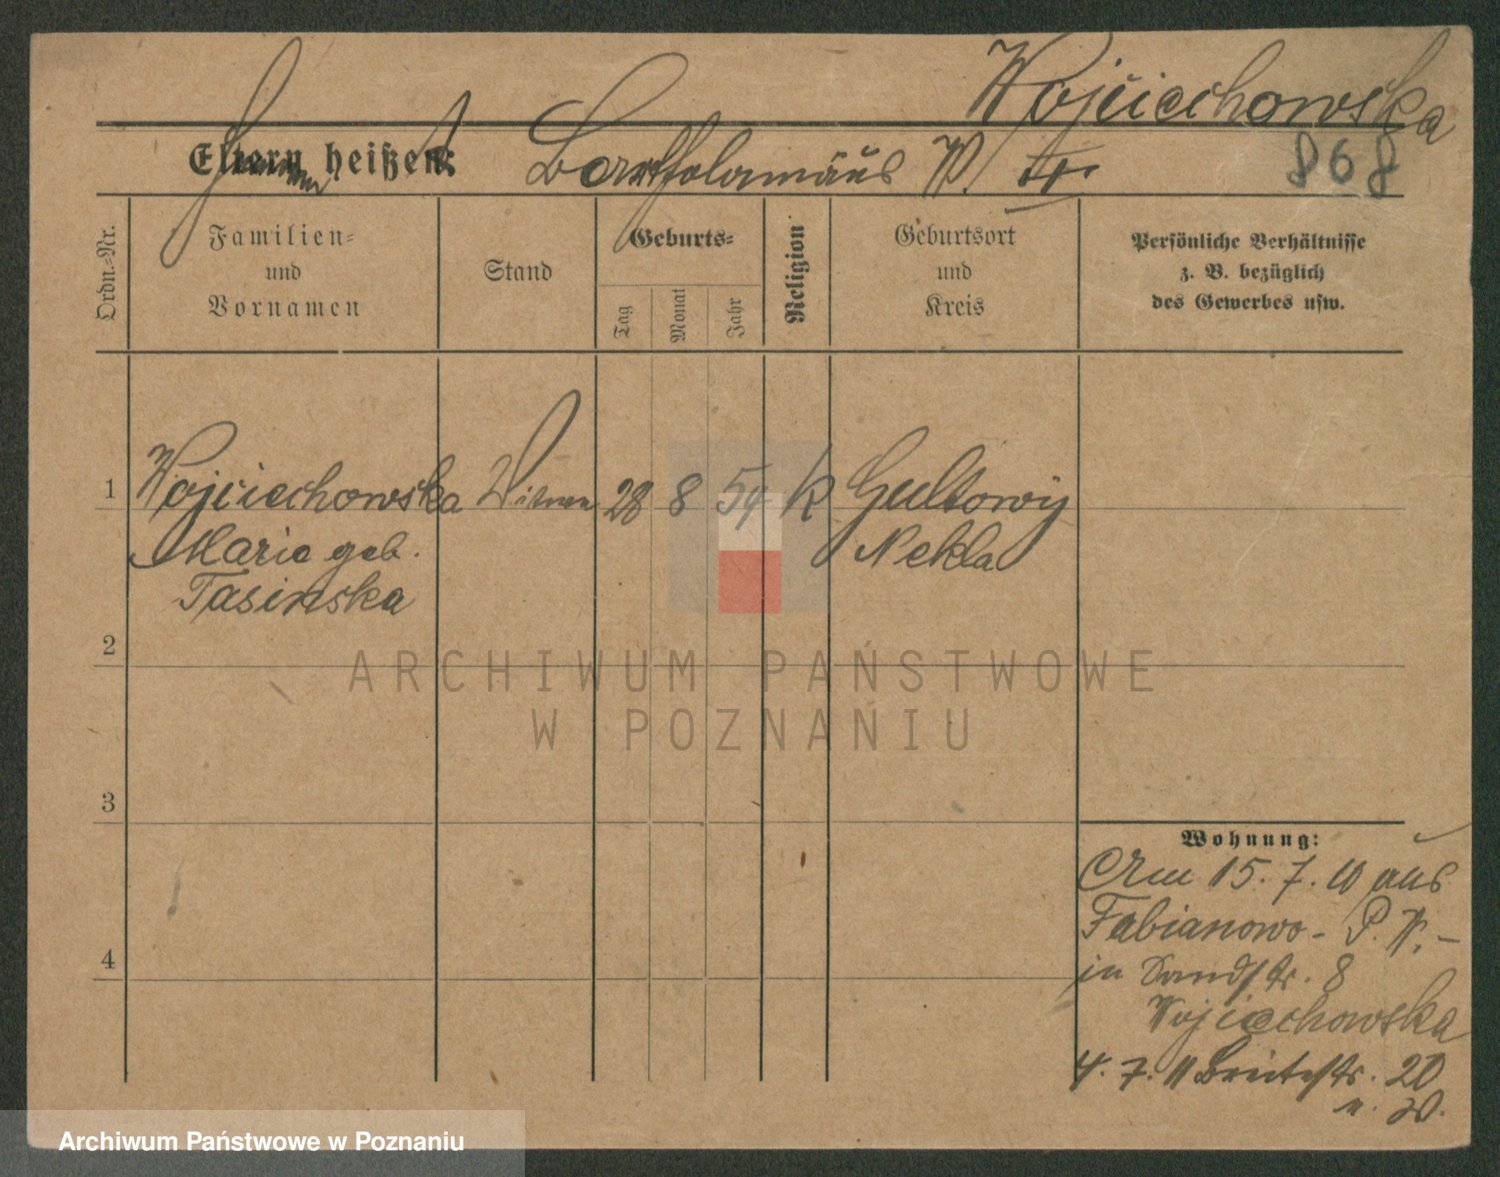 Wojciechowska
Eltern heißen: Bartholomäus W.
868
Ordn.-Nr.
Familien- und Vornamen
Stand
Geburts-
Tag
Monat
Jahr
Religion
Geburtsort und Kreis
Persönliche Verhältnisse
z. B. bezüglich
des Gewerbes usw.
1 Wojciechowska Witwe 28 8 59 k Gultowy
Maria geb. Nekla
Tasinska
2
3
4
Wohnung:
Am 15.7.10 aus
Fabianowo - P. W. -
in Sandstr. 8
Wojciechowska
4. 7. 11 Breitestr. 20
ARCHIWUM PAŃSTWOWE
W POZNANIU
Archiwum Państwowe w Poznaniu